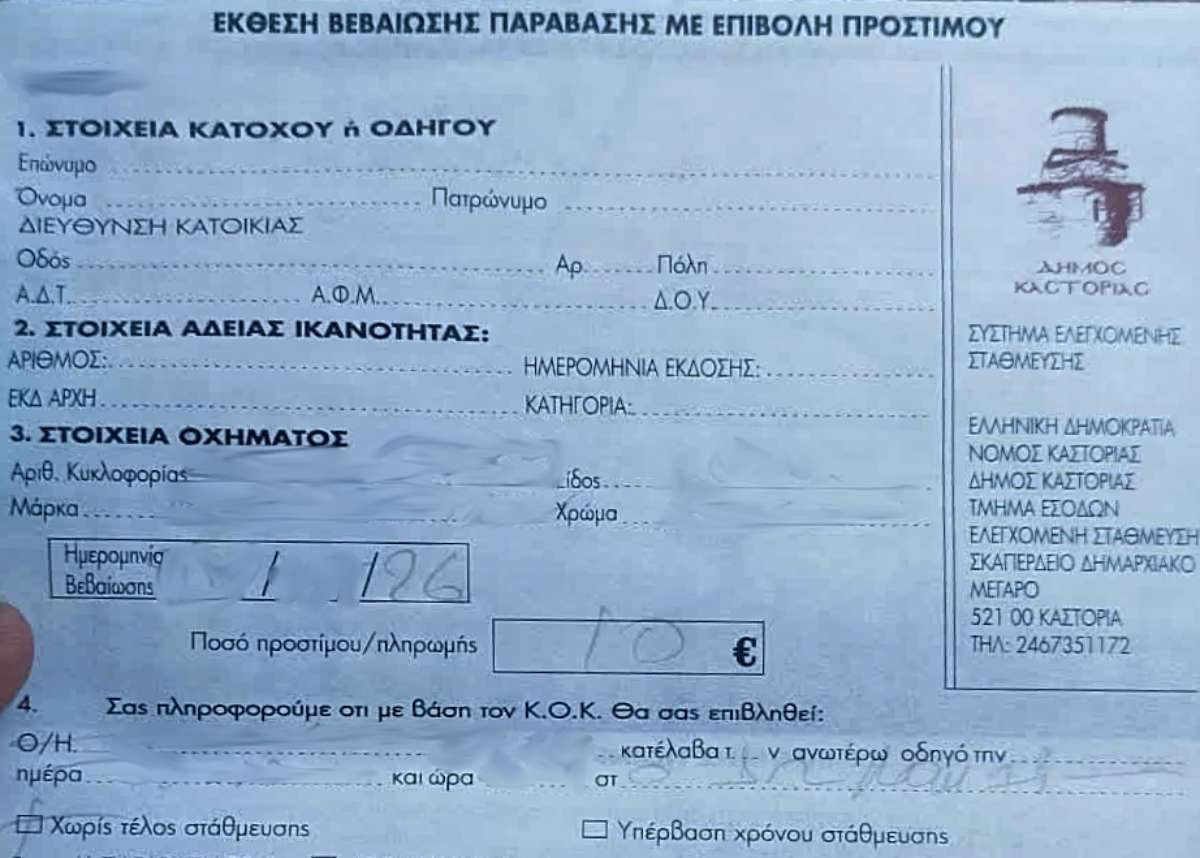 ΕΚΘΕΣΗ ΒΕΒΑΙΩΣΗΣ ΠΑΡΑΒΑΣΗΣ ΜΕ ΕΠΙΒΟΛΗ ΠΡΟΣΤΙΜΟΥ
1. ΣΤΟΙΧΕΙΑ ΚΑΤΟΧΟΥ ή ΟΔΗΓΟΥ
Επώνυμο
Όνομα Πατρώνυμο
ΔΙΕΥΘΥΝΣΗ ΚΑΤΟΙΚΙΑΣ
Οδός Αρ. Πόλη
Α.Δ.Τ. Α.Φ.Μ. Δ.Ο.Υ.
2. ΣΤΟΙΧΕΙΑ ΑΔΕΙΑΣ ΙΚΑΝΟΤΗΤΑΣ:
ΑΡΙΘΜΟΣ: ΗΜΕΡΟΜΗΝΙΑ ΕΚΔΟΣΗΣ:
ΕΚΔ ΑΡΧΗ ΚΑΤΗΓΟΡΙΑ:
3. ΣΤΟΙΧΕΙΑ ΟΧΗΜΑΤΟΣ
Αριθ. Κυκλοφορίας ίδος
Μάρκα Χρώμα
Ημερομηνία
Βεβαίωσης / /26
Ποσό προστίμου/πληρωμής 10 €
4. Σας πληροφορούμε οτι με βάση τον Κ.Ο.Κ. Θα σας επιβληθεί:
Ο/Η κατέλαβα τ. ν ανωτέρω οδηγό την
ημέρα και ώρα στ
Χωρίς τέλος στάθμευσης Υπέρβαση χρόνου στάθμευσης
ΔΗΜΟΣ
ΚΑΣΤΟΡΙΑΣ
ΣΥΣΤΗΜΑ ΕΛΕΓΧΟΜΕΝΗΣ
ΣΤΑΘΜΕΥΣΗΣ
ΕΛΛΗΝΙΚΗ ΔΗΜΟΚΡΑΤΙΑ
ΝΟΜΟΣ ΚΑΣΤΟΡΙΑΣ
ΔΗΜΟΣ ΚΑΣΤΟΡΙΑΣ
ΤΜΗΜΑ ΕΣΟΔΩΝ
ΕΛΕΓΧΟΜΕΝΗ ΣΤΑΘΜΕΥΣΗ
ΣΚΑΠΕΡΔΕΙΟ ΔΗΜΑΡΧΙΑΚΟ
ΜΕΓΑΡΟ
521 00 ΚΑΣΤΟΡΙΑ
ΤΗΛ: 2467351172